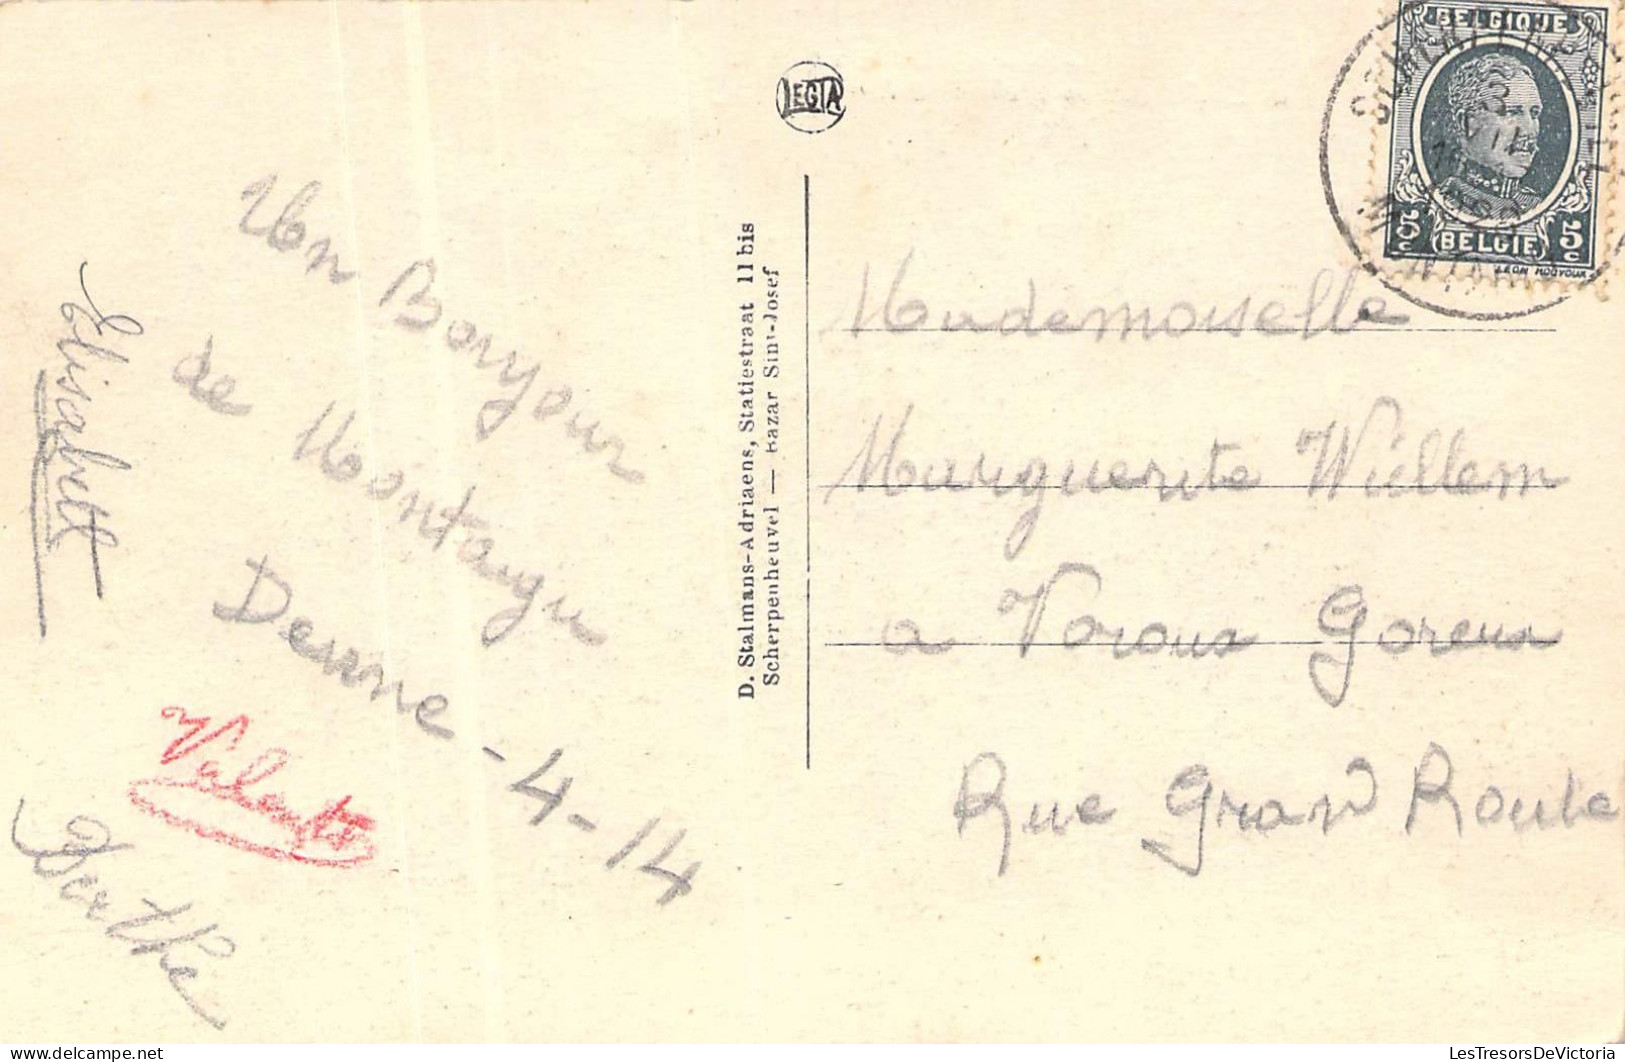 Un Bonjour
de Montaigu
Deurne - 4 - 14
Elisabett
Berthe
LEGIA
D. Stalmans-Adriaens, Statiestraat 11 bis
Scherpenheuvel — Bazar Sint-Josef
BELGIQUE
5c 5c
BELGIË
Mademoiselle
Marguerite Willem
a Voroux Goreux
Rue Grand Route
LesTresorsDeVictoria